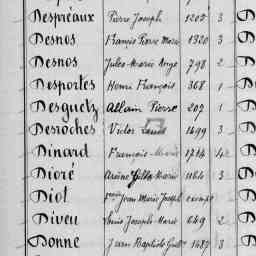 Despreaux Pierre Joseph 1202 3
Desnos Francis Pierre Marie 1320 3
Desnos Jules Marie Ange 798 2
Desportes Henri François 368 1
Desguetz Allain Pierre 207 1
Desroches Victor 1499 3
Dinard François Marie 1764 4
Dioré Arsène Marie 1164 3
Diot Jean Marie Joseph exempt
Diveu Louis Joseph Marie 649 2
Donne Jean Baptiste 1487 3